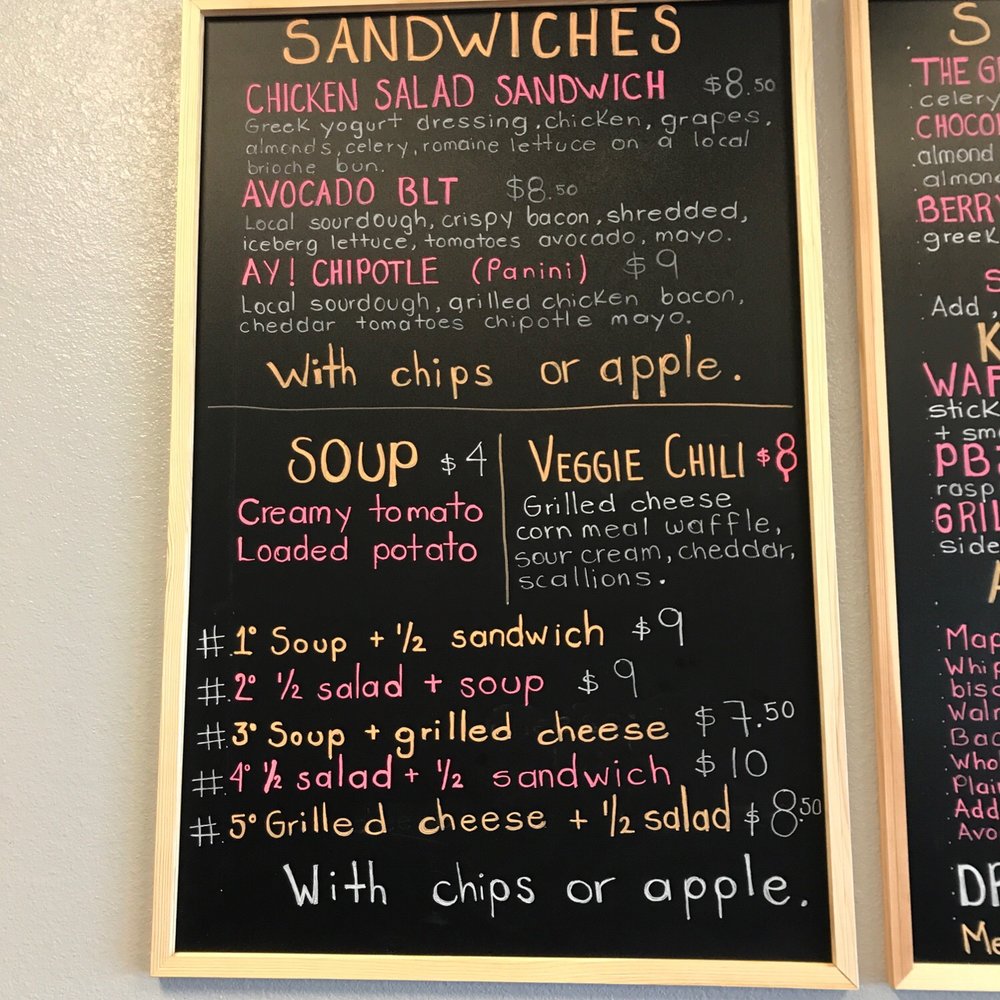 SANDWICHES
CHICKEN SALAD SANDWICH $8.50
Greek yogurt dressing, chicken, grapes,
almonds, celery, romaine lettuce on a local
brioche bun.
AVOCADO BLT $8.50
Local sourdough, crispy bacon, shredded,
iceberg lettuce, tomatoes avocado, mayo.
AY! CHIPOTLE (Panini) $9
Local sourdough, grilled chicken bacon,
cheddar tomatoes chipotle mayo.
With chips or apple.
SOUP $4
Creamy tomato
Loaded potato
VEGGIE CHILI $8
Grilled cheese
corn meal waffle,
sour cream, cheddar,
scallions.
#1° Soup + 1/2 sandwich $9
#2° 1/2 salad + soup $9
#3° Soup + grilled cheese $7.50
#4° 1/2 salad + 1/2 sandwich $10
#5° Grilled cheese + 1/2 salad $8.50
With chips or apple.
S
THE G
celery
CHOCO
almond
almon
BERRY
greek
S
Add,
K
WAF
stick
+ sm
PB
rasp
GRIL
side
A
Map
Whip
bisc
Waln
Bac
Who
Plain
Add
Avo
DR
Me